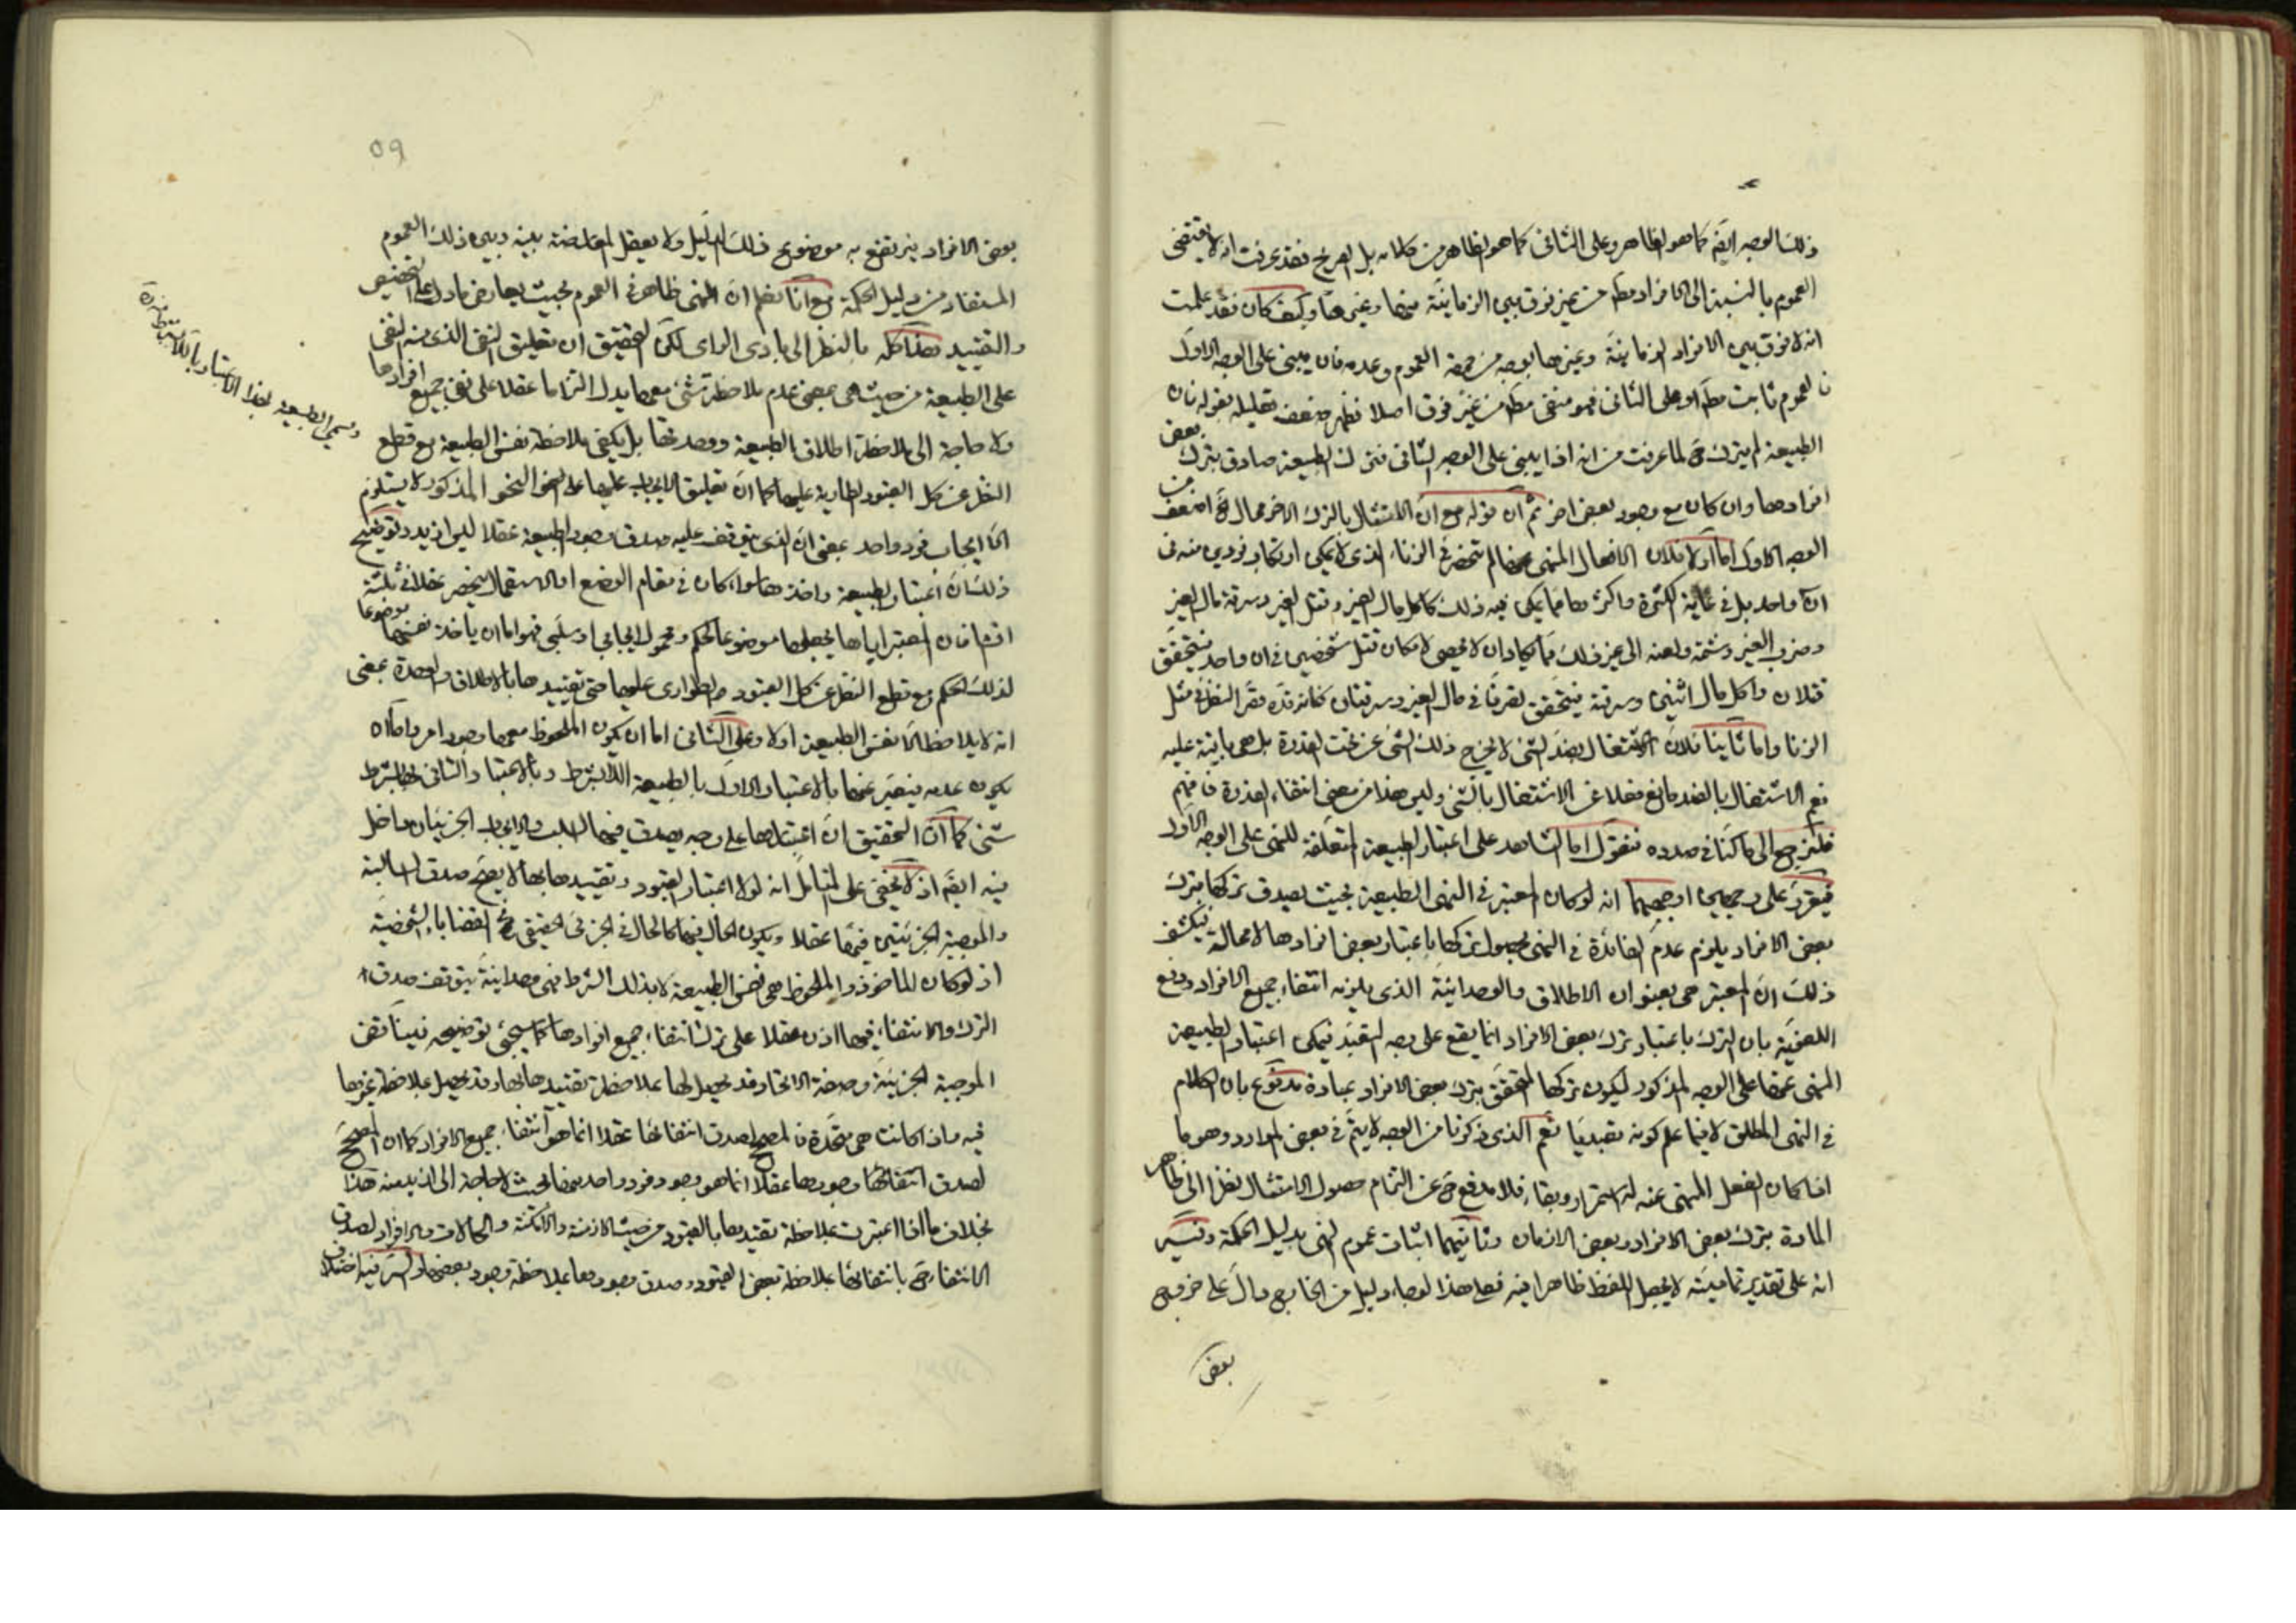 ذلك الوجه ايضَ كما هو الظاهر وعلى الثانى كما هو الظاهر من كلامه بل الصريح فقد عرفت انه لا يقتضى
العموم بالنسبة الى الافراد مطَ من غير فرق بين الزمانيّة منها وغيرها وكيف كان فقد علمت
انه لا فرق بين الافراد الزمانيّة وغيرها بوجه من جهة العموم وعدمه فان يبنى على الوجه الاوّل
فالعموم ثابت مطَ او على الثانى فهو منفى مطَ من غير فرق اصلا فظهر ضعف تعليله بقوله فان
الطبيعة لم يترك حَ لما عرفت من انه اذا يبنى على الوجه الثانى فترك الطبيعة صادق بترك بعض
افرادها وان كان مع وجود بعض اخر ثم انّ قوله مع انّ الامتثال بالترك الاخر محال حَ اضعف من
الوجه الاوّل اما اوّلا فلان الافعال المنهى عنها لم تنحصر فى الزناء الذى لا يمكن ارتكاب فردين منه فى
ان واحد بل فى غاية الكثرة واكثرها مما يمكن فيه ذلك كاكل مال الغير وقتل الغير وسرقة مال الغير
وضرب الغير وشتمه ولعنه الى غير ذلك مما يكاد ان لا يحصى لامكان قتل شخصين فى ان واحد فيتحقق
قتلان واكل مال اثنين وسرقته فيتحقق تصرفا فى مال الغير وسرقتان فكانه قدّه قصّر النظر فى مثل
الزنا واما ثانيا فلانّ الاشتغال بضدّ الشئ لا يخرج ذلك الشئ عن تحت القدرة بل هى باقية عليه
نعم الاشتغال بالضد مانع عقلا عن الاشتغال بالشئ وليس هذا من معنى انتفاء القدرة فافهم
فلنرجع الى ما كنّا فى صدده فنقول اما الشاهد على اعتبار الطبيعة المتعلّقة للنهى على الوجه الاوّل
فيقرّر على وجهين اوجههما انه لو كان المعتبر فى النهى الطبيعة بحيث يصدق تركها بترك
بعض الافراد يلزم عدم الفائدة فى النهى لحصول تركها باعتبار بعض افرادها لا محالة فيكشف
ذلك انّ المعتبر هى بعنوان الاطلاق والوحدانيّة الذى يلزمه انتفاء جميع الافراد ودفع
اللغويّة بان الترك باعتبار ترك بعض الافراد انما يقع على وجه التعبّد فيمكن اعتبار الطبيعة
المنهى عنها على الوجه المذكور ليكون تركها المتحقق بترك بعض الافراد عبادة مدفوع بان الكلام
فى النهى المطلق لا فيما علم كونه تعبديّا نعم الذى ذكرنا من الوجه لا يتمّ فى بعض الموارد وهو ما
اذا كان الفعل المنهى عنه له استمرار وبقاء فلا مدفع حَ عن التزام حصول الامتثال نظرا الى ظاهر
المادة بترك بعض الافراد وبعض الازمان وثانيهما اثبات عموم النهى بدليل الحكمة وفيه
انه على تقدير تماميّته لا يجعل اللفظ ظاهرا فيه فعلى هذا لو جاء دليل من الخارج دالّ على خروج
بعض
59
بعض الافراد يرتفع به موضوع ذلك الدليل ولا يعقل المعارضة بينه وبين ذلك العموم
المستفاد من دليل الحكمة مع انا نعلم انّ النهى ظاهر فى العموم بحيث يعارض ما دل على التخصيص
والتقييد هذا كله بالنظر الى بادى الراى لكن التحقيق ان تعليق النفى الذى منه النهى
على الطبيعة من حيث هى بمعنى عدم ملاحظة شئ معها يدل التزاما عقلا على نفى جميع افرادها
ولا حاجة الى ملاحظة اطلاق الطبيعة ووحدتها بل يكفى ملاحظة نفس الطبيعة مع قطع
النظر عن كل القيود الطارية عليها كما انّ تعليق الايجاب عليها على النحو المذكور لا يستلزم
الّا ايجاب فرد واحد بمعنى انّ الذى يتوقف عليه صدق وجود الطبيعة عقلا ليس ازيد وتوضيح
ذلك انّ اعتبار الطبيعة واخذها سواء كان فى مقام الوضع او الاستعمال ينحصر عقلا فى ثلثة
اقسام فان المعتبر اياها يجعلها موضوعا لحكم ومحمول ايجابى او سلبى فهو اما ان ياخذ نفسها موضوعا
لذلك الحكم مع قطع النظر عن كل القيود والطوارى عليها حتى تقييدها بالاطلاق والوحدة بمعنى
انه لا يلاحظ الّا نفس الطبيعة اولا وعلى الثانى اما ان يكون الملحوظ معها وجود امر واما ان
يكون عدمه فيعبّر عنها بالاعتبار الاول بالطبيعة اللّابشرط وبالاعتبار الثانى بها بشرط
وتسمى الطبيعة بهذا الاعتبار باللابشرط
شئ كما انّ التحقيق انّ اعتبارها على وجه يصدق فيها السلب والايجاب الجزئيان داخل
فيه ايضَ اذ لا يخفى على المتامل انه لولا اعتبار القيود وتقييدها بها لا يصحّ صدق السالبة
والموجبة الجزئيتين فيها عقلا ويكون الحال فيها كالحال فى الجزئى الحقيقى فى القضايا الشخصيّة
اذ لو كان الماخوذ والملحوظ هى نفس الطبيعة لا بذلك الشرط فهى وحدانيّة يتوقف صدق
الترك والانتفاء فيها اذن عقلا على ترك انتفاء جميع افرادها كما سيجئ توضيحه فيناقض
الموجبة الجزئيّة وصفة الاتحاد قد يحصل لها بملاحظة تقييدها بها وقد يحصل بملاحظة غيرها
فيه واذا كانت هى متحدة فالمصحح لصدق انتفائها عقلا انما هو انتفاء جميع الافراد كما ان المصحح
لصدق وجودها عقلا انما هو وجود فرد واحد منها بحيث لا حاجة الى ازيد منه هذا
بخلاف ما اذا اعتبرت بملاحظة تقييدها بالقيود من حيث الازمنة والامكنة والحالات والافراد لصدق
الانتفاء حَ بانتفائها بملاحظة بعض القيود وصدق وجودها بملاحظة وجود بعضها والسرّ فيه اختلاف